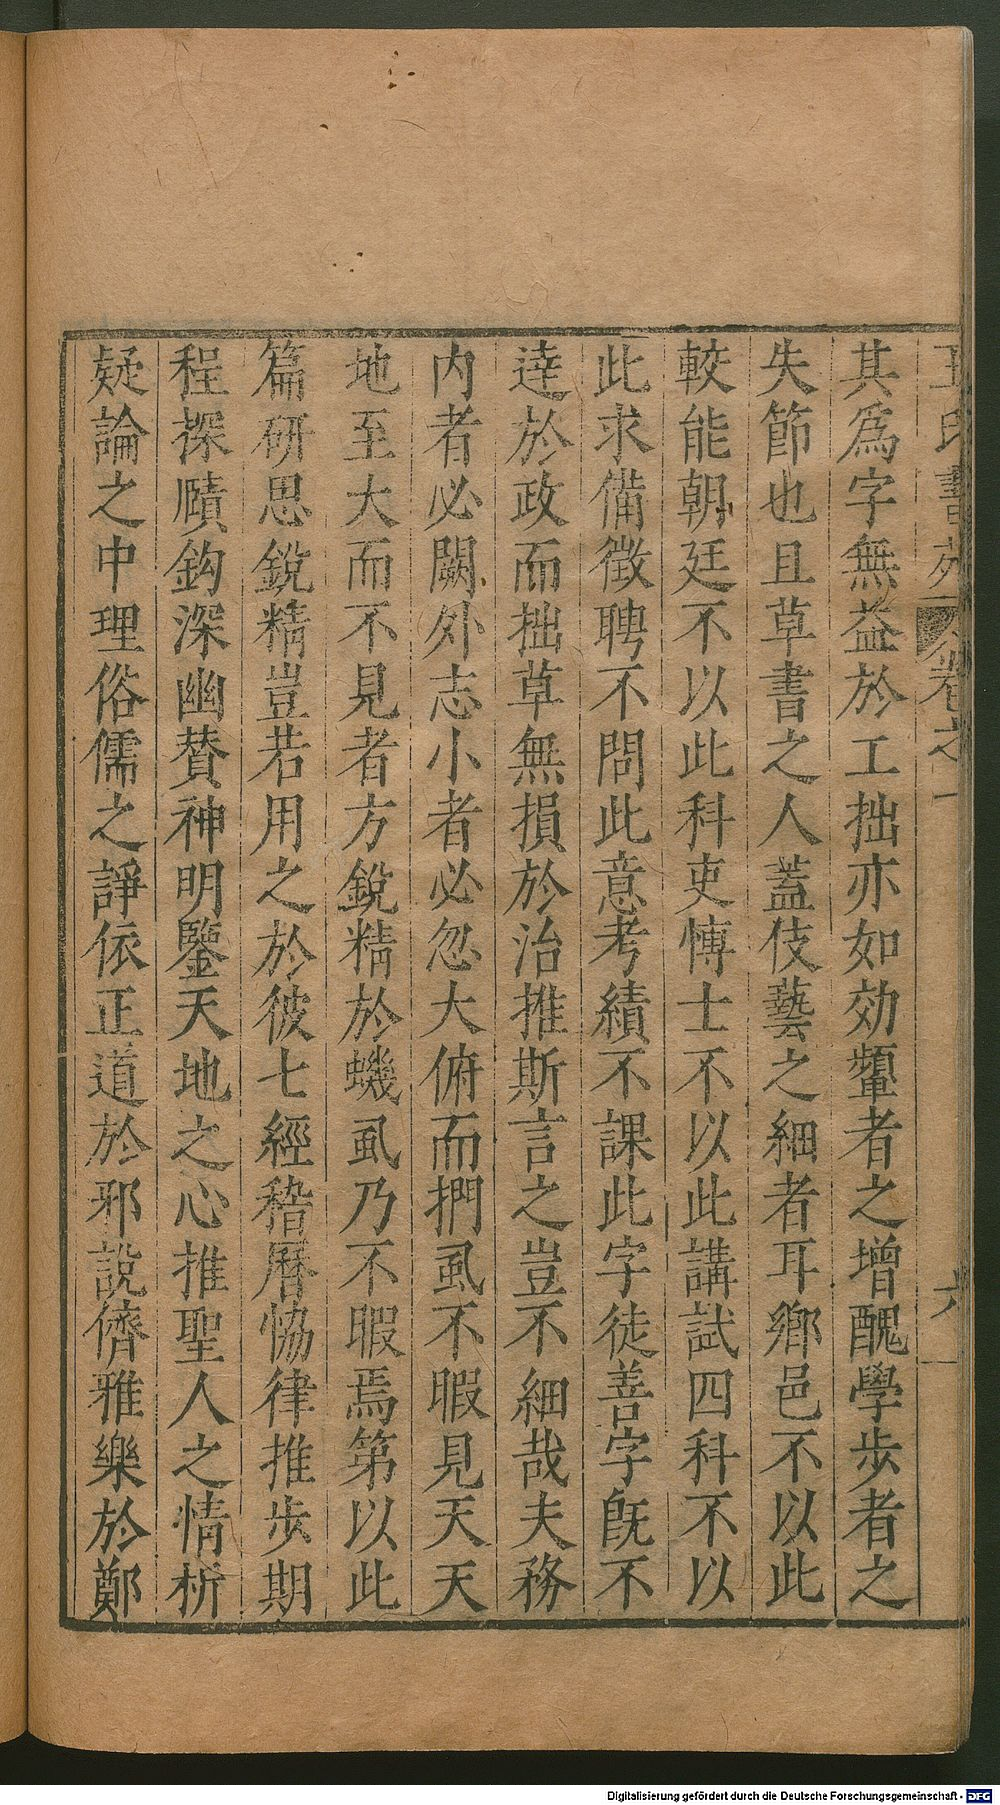 王氏書苑 卷之一 六
其爲字無益於工拙亦如効顰者之增醜學步者之
失節也且草書之人蓋伎藝之細者耳鄉邑不以此
較能朝廷不以此科吏愽士不以此講試四科不以
此求備徵聘不問此意考績不課此字徒善字旣不
達於政而拙草無損於治推斯言之豈不細哉夫務
内者必闕外志小者必忽大俯而捫虱不暇見天天
地至大而不見者方銳精於蟣虱乃不暇焉第以此
篇研思銳精豈若用之於彼七經稽曆恊律推步期
程探賾鈎深幽賛神明鑒天地之心推聖人之情析
疑論之中理俗儒之諍依正道於邪說儕雅樂於鄭
Digitalisierung gefördert durch die Deutsche Forschungsgemeinschaft - DFG